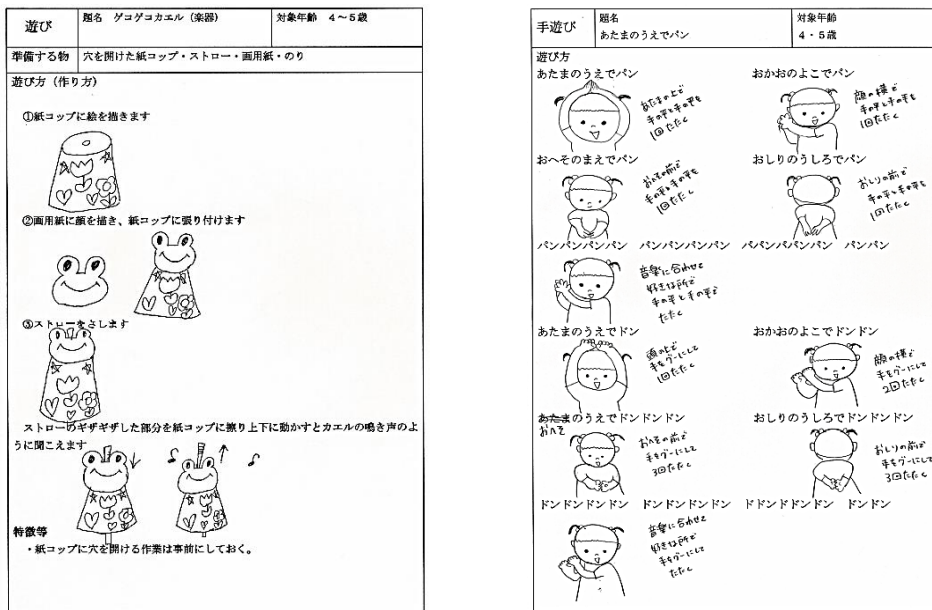 遊び
題名 ゲコゲコカエル(楽器)
対象年齢 4～5歳
準備する物
穴を開けた紙コップ・ストロー・画用紙・のり
遊び方(作り方)
①紙コップに絵を描きます
②画用紙に顔を描き、紙コップに張り付けます
③ストローをさします
ストローのギザギザした部分を紙コップに擦り上下に動かすとカエルの鳴き声のよ
うに聞こえます
特徴等
・紙コップに穴を開ける作業は事前にしておく。
手遊び
題名
あたまのうえでパン
対象年齢
4・5歳
遊び方
あたまのうえでパン
あたまの上で
手の平と手の平を
1回たたく
おかおのよこでパン
顔の横で
手の平と手の平を
1回たたく
おへそのまえでパン
おへその前で
手の平と手の平を
1回たたく
おしりのうしろでパン
おしりの前で
手の平と手の平を
1回たたく
パンパンパンパン パンパンパンパン パパンパパンパン パンパン
音楽に合わせて
好きな所で
手の平と手の平で
たたく
あたまのうえでドン
頭の上で
手をグーにして
1回たたく
おかおのよこでドンドン
顔の横で
手をグーにして
2回たたく
あたまのうえでドンドンドン
おへそ
おへその前で
手をグーにして
3回たたく
おしりのうしろでドンドンドン
おしりの前で
手をグーにして
3回たたく
ドンドンドンドン ドンドンドンドン ドドンドドンドン ドンドン
音楽に合わせて
好きな所で
手をグーにして
たたく